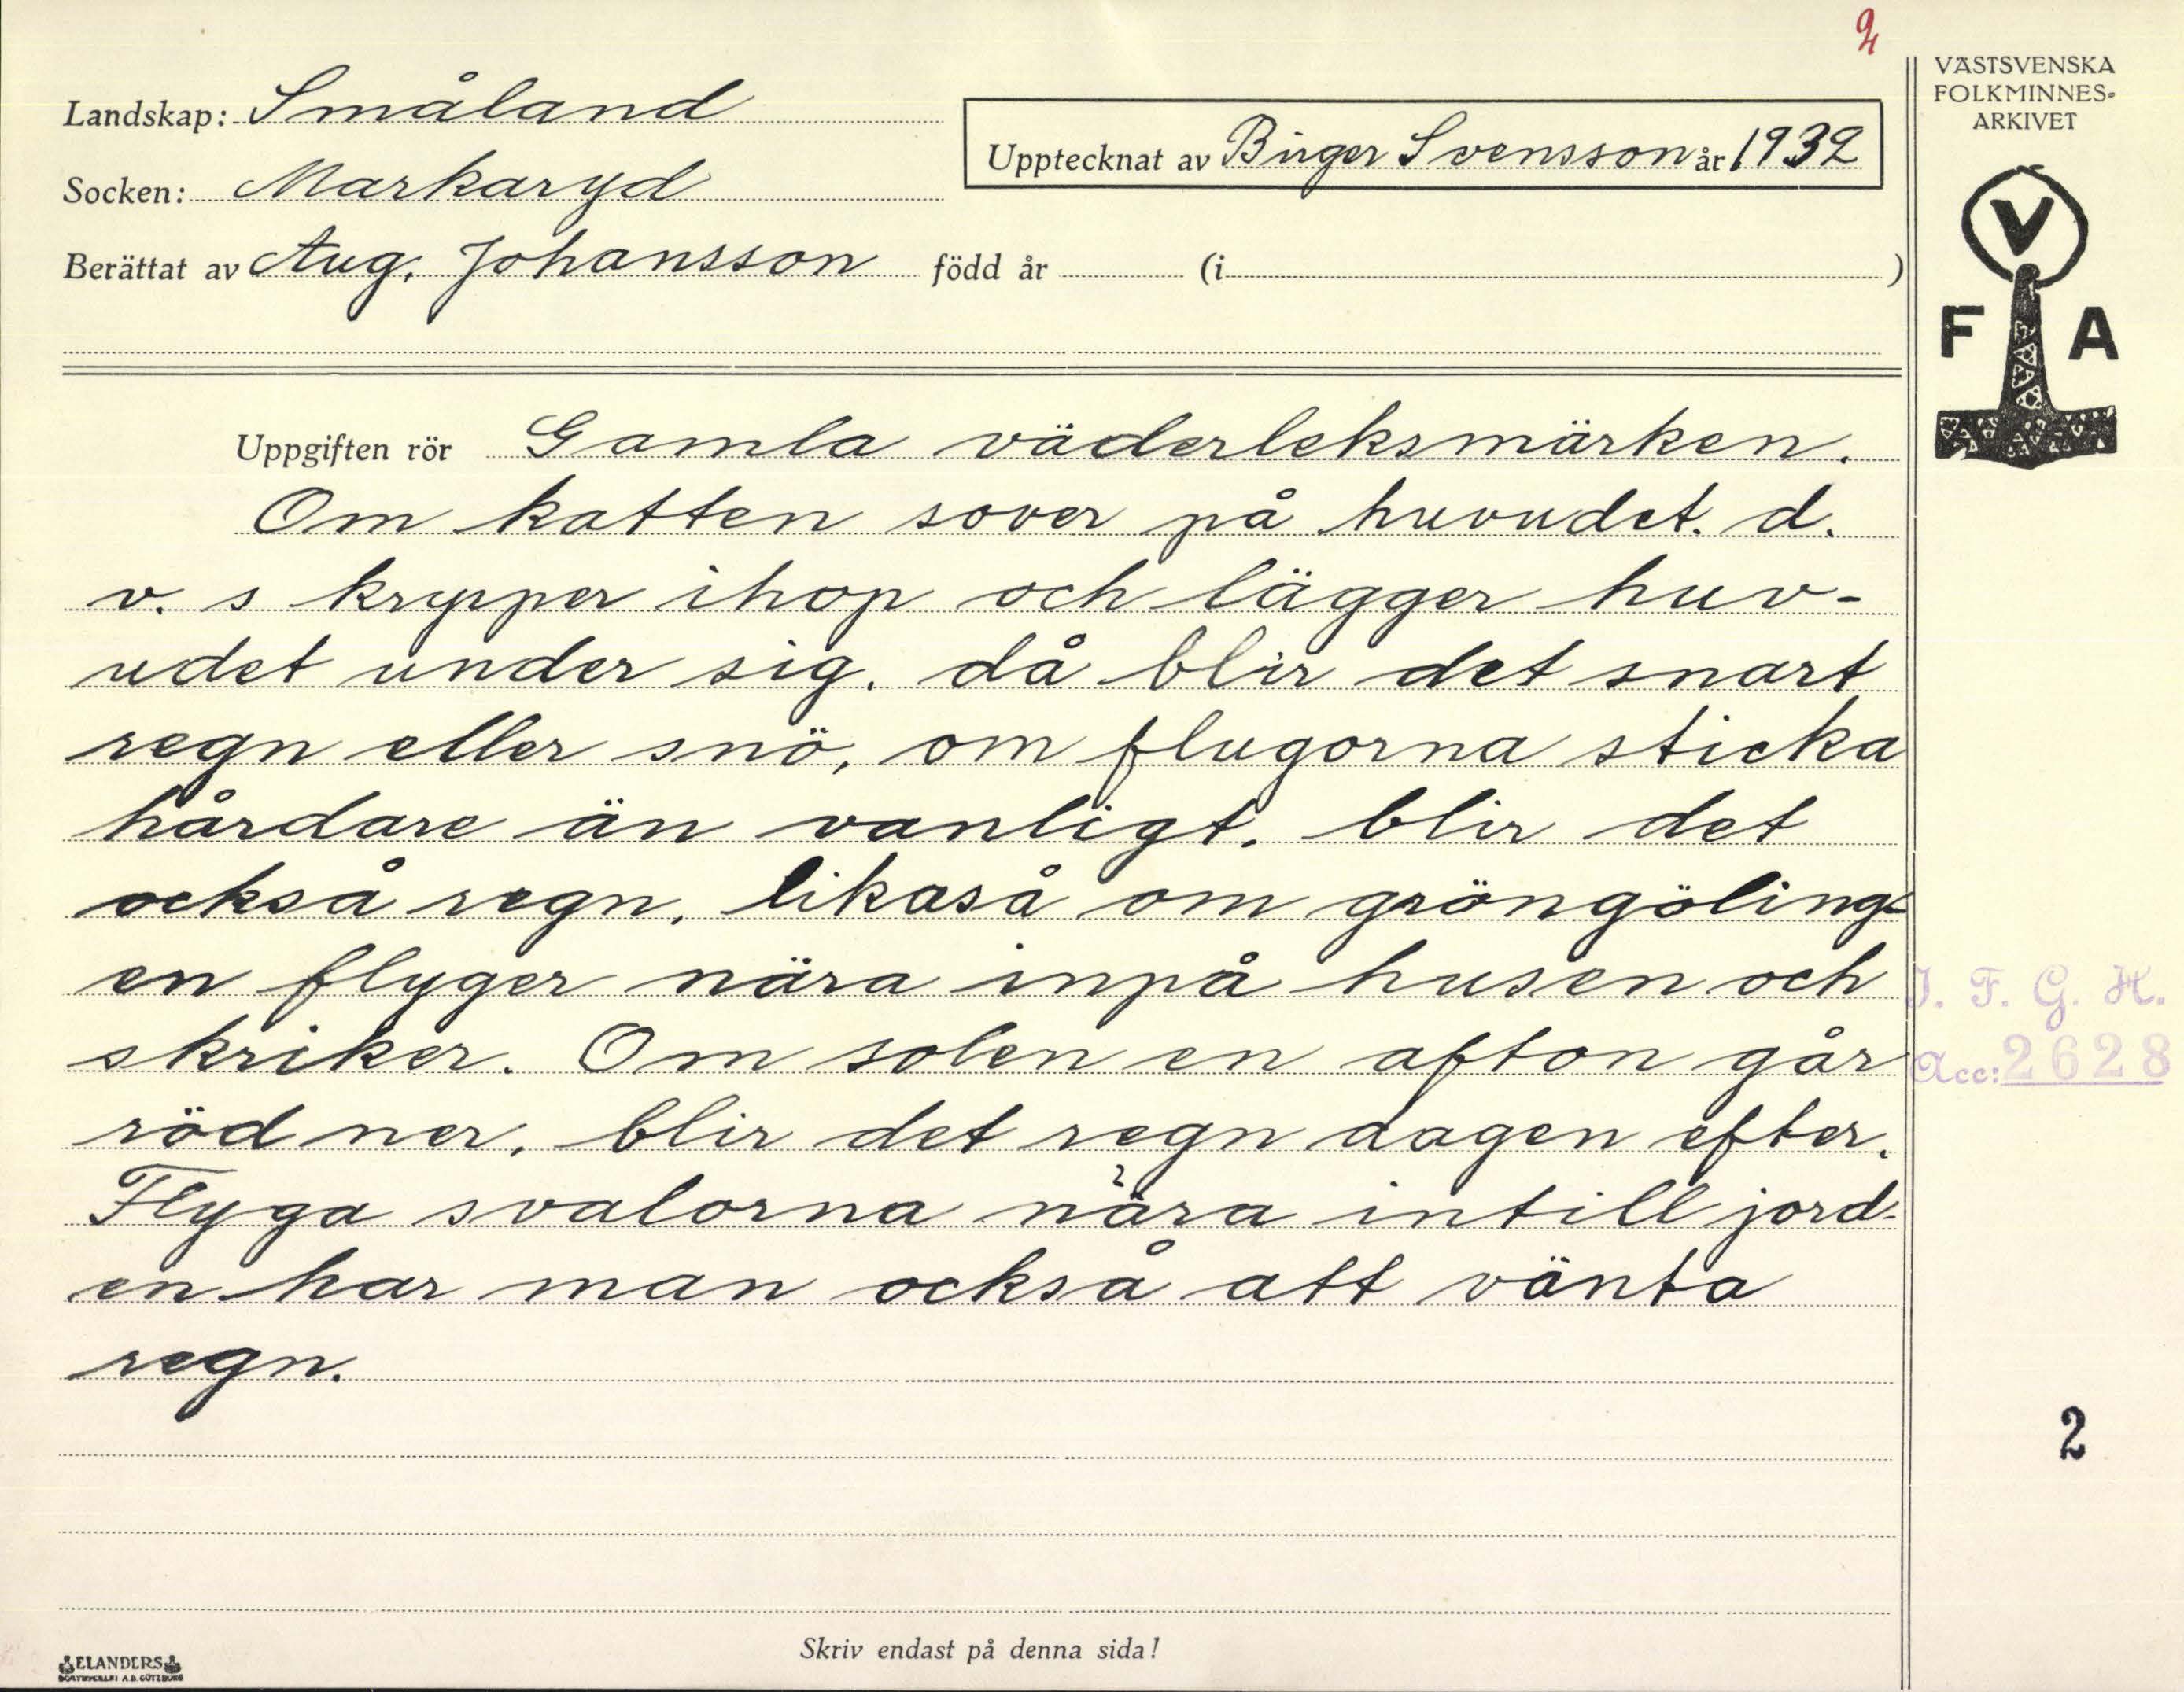 2
VÄSTSVENSKA
FOLKMINNES-
ARKIVET
Landskap: Småland
Upptecknat av Birger Svensson år 1932
Socken: Markaryd
Berättat av Aug. Johansson född år (i )
V
F A
Uppgiften rör Gamla väderleksmärken.
Om katten sover på huvudet. d.
v. s kryper ihop och lägger huv-
udet under sig. då blir det snart
regn eller snö, om flugorna sticka
hårdare än vanligt, blir det
också regn, likaså om gröngöling-
en flyger nära inpå husen och
skriker. Om solen en afton går
röd ner, blir det regn dagen efter.
Flyga svalorna nära intill jord-
en har man också att vänta
regn.
I. F. G. H.
Acc: 2628
2
Skriv endast på denna sida!
ELANDERS
BOKTRYCKERI A.B. GÖTEBORG